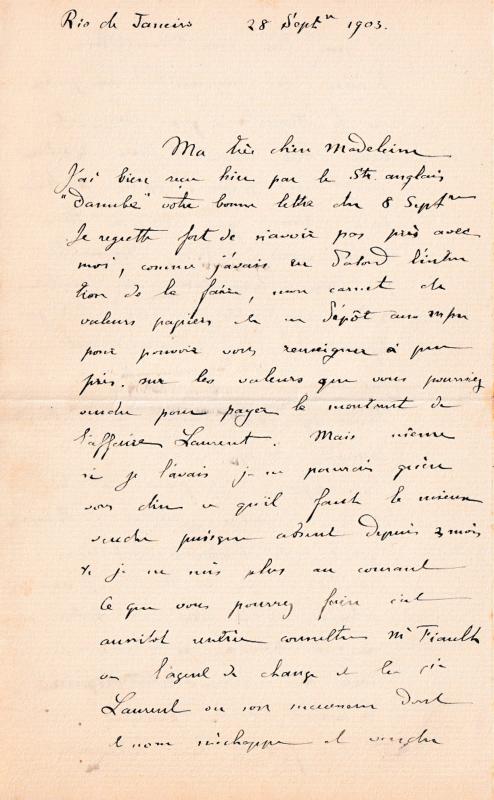 Rio de Janeiro 28 Sept re 1903.
Ma très chère Madeleine
J'ai bien reçu hier par le Str. anglais
"Danube" votre bonne lettre du 8 Sept re
Je regrette fort de n'avoir pas pris avec
moi, comme j'avais eu d'abord l'inten
tion de le faire, mon carnet de
valeurs papiers de en dépôt
pour pouvoir vous renseigner à peu
près. sur les valeurs que vous pourriez
vendre pour payer le montant de
l'affaire Laurent. Mais même
si je l'avais je ne pourrais guère
vous dire ce qu'il faut le mieux
vendre puisque absent depuis 3 mois
je ne suis plus au courant
Ce que vous pourrez faire c'est
aussitôt rentrée consulter Mr
ou l'agent de change de la
Laurent ou son successeur dont
le nom m'échappe et vendre